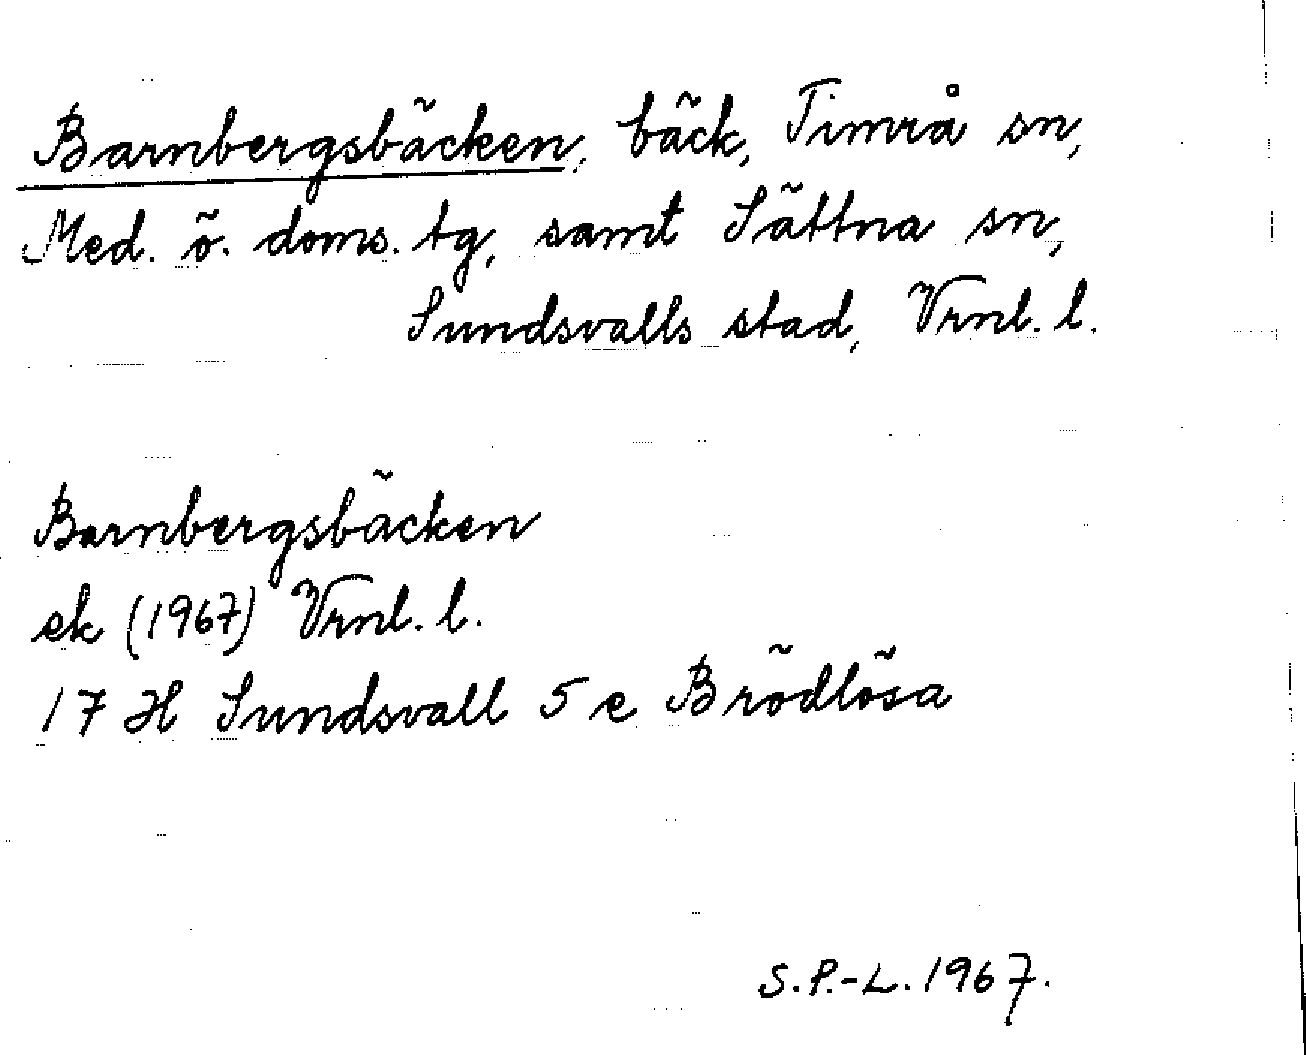 Barnbergsbäcken, bäck, Timrå sn,
Med. ö. doms. tg, samt Sättna sn,
Sundsvalls stad, Vrnl. l.
Barnbergsbäcken
ek (1967) Vrnl. l.
17 H Sundsvall 5 e Brödlösa
S.P.-L. 1967.